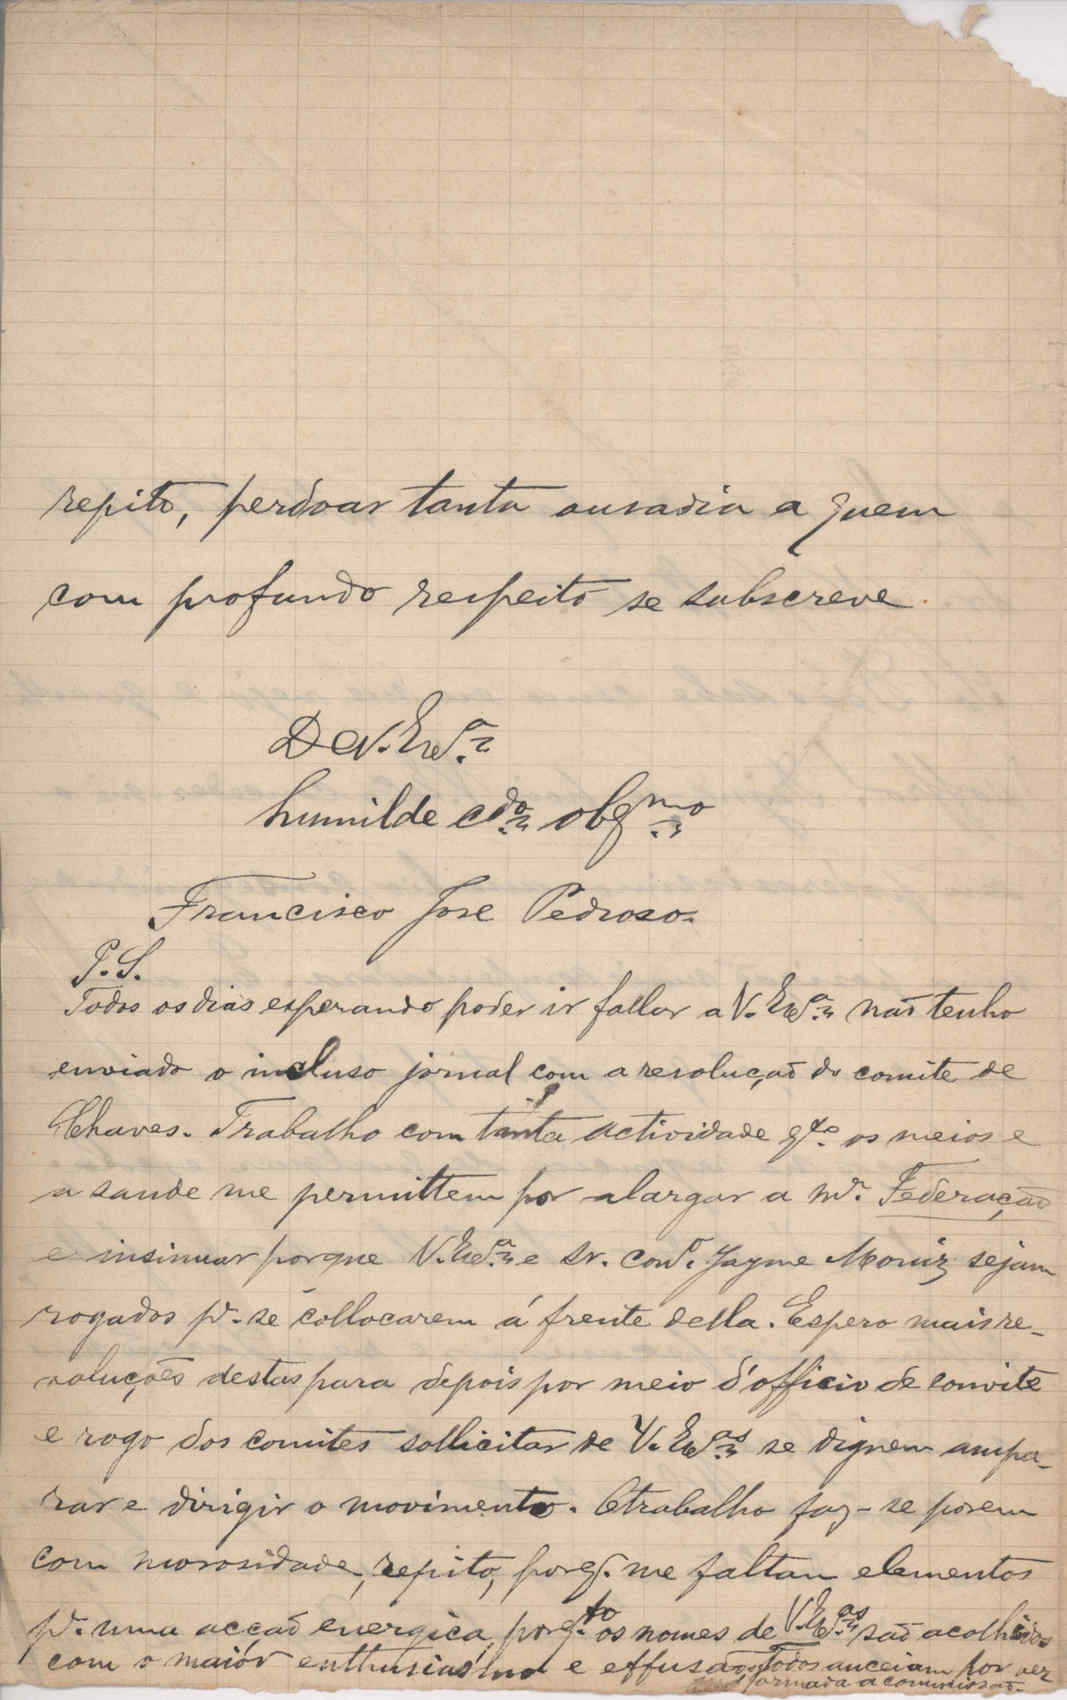 repito, perdoar tanta ousadia a quem
com profundo respeito se subscreve.
De V. Exª.
humilde cdo. obgmo.
Francisco José Pedroso.
P.S.
Todos os dias esperando poder ir fallar a V. Exª. não tenho
enviado o incluso jornal com a resolução do comite de
Chaves. Trabalho com tanta actividade qto. os meios e
a saude me permittem por alargar a mª. Federação
e insinuar porque V. Exª. e Sr. Consº. Jayme Moniz sejam
rogados pª. se collocarem á frente della. Espero mais re-
soluções destas para depois por meio d'officio de convite
e rogo dos comites sollicitar de V. Exas. se dignem ampa-
rar e dirigir o movimento. O trabalho faz-se porem
com morosidade, repito, porq. me faltam elementos
pª. uma acção energica, porqto. os nomes de V. Exas. são acolhidos
com o maiór enthusiasmo e effusão. Todos anceiam por ver
formada a commissão.